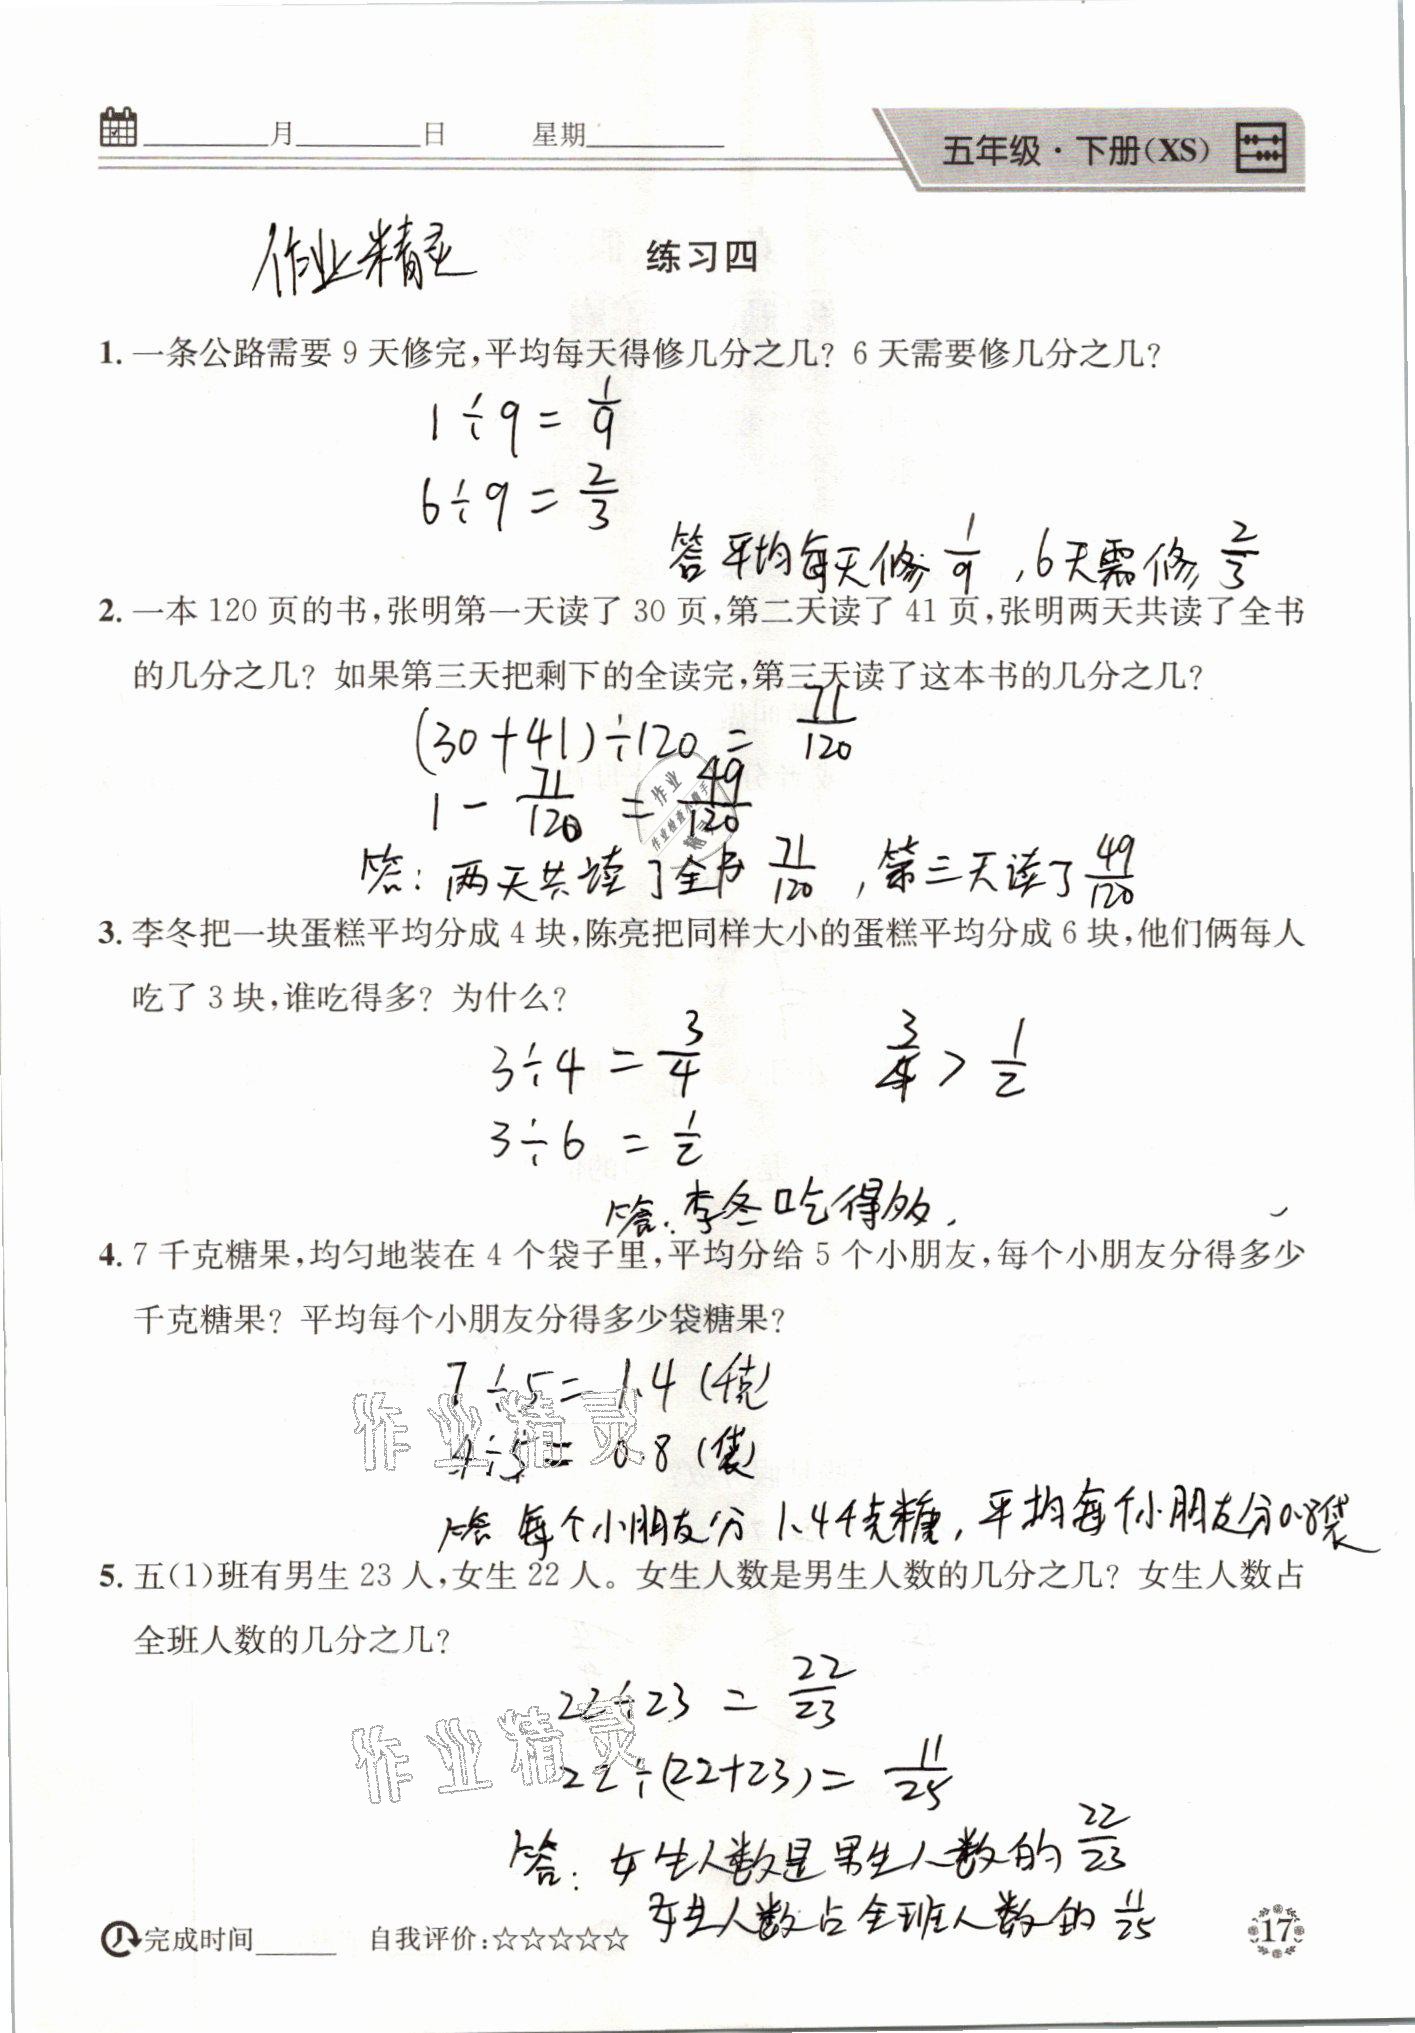 ____月____日 星期____
五年级·下册(XS)
作业精灵
练习四
1. 一条公路需要9天修完,平均每天得修几分之几? 6天需要修几分之几?
1÷9=1/9
6÷9=2/3
答平均每天修1/9,6天需修2/3
2. 一本120页的书,张明第一天读了30页,第二天读了41页,张明两天共读了全书
的几分之几? 如果第三天把剩下的全读完,第三天读了这本书的几分之几?
(30+41)÷120=71/120
1-71/120=49/120
答:两天共读了全书71/120,第三天读了49/120
3. 李冬把一块蛋糕平均分成4块,陈亮把同样大小的蛋糕平均分成6块,他们俩每人
吃了3块,谁吃得多? 为什么?
3÷4=3/4 3/4>1/2
3÷6=1/2
答:李冬吃得多.
4. 7千克糖果,均匀地装在4个袋子里,平均分给5个小朋友,每个小朋友分得多少
千克糖果? 平均每个小朋友分得多少袋糖果?
7÷5=1.4(千克)
4÷5=0.8(袋)
作业精灵
答每个小朋友分1.4千克糖,平均每个小朋友分0.8袋
5. 五(1)班有男生23人,女生22人。女生人数是男生人数的几分之几? 女生人数占
全班人数的几分之几?
22÷23=22/23
作业精灵
22÷(22+23)=11/25
答:女生人数是男生人数的22/23
女生人数占全班人数的11/25
完成时间____ 自我评价:☆☆☆☆☆
17